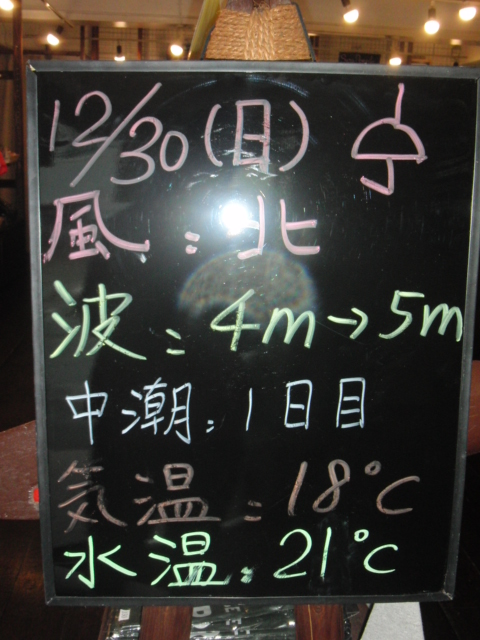 12/30(日)
風:北
波:4m→5m
中潮:1日目
気温:18℃
水温:21℃